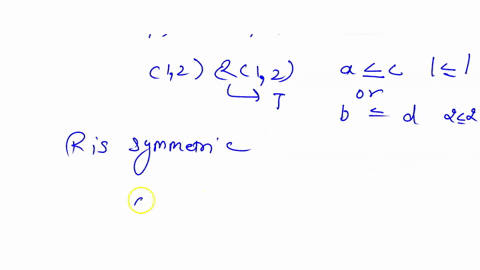 (1,2) R (1,2) a ≤ c 1 ≤ 1
↳ T or
b ≤ d 2 ≤ 2
R is symmetric